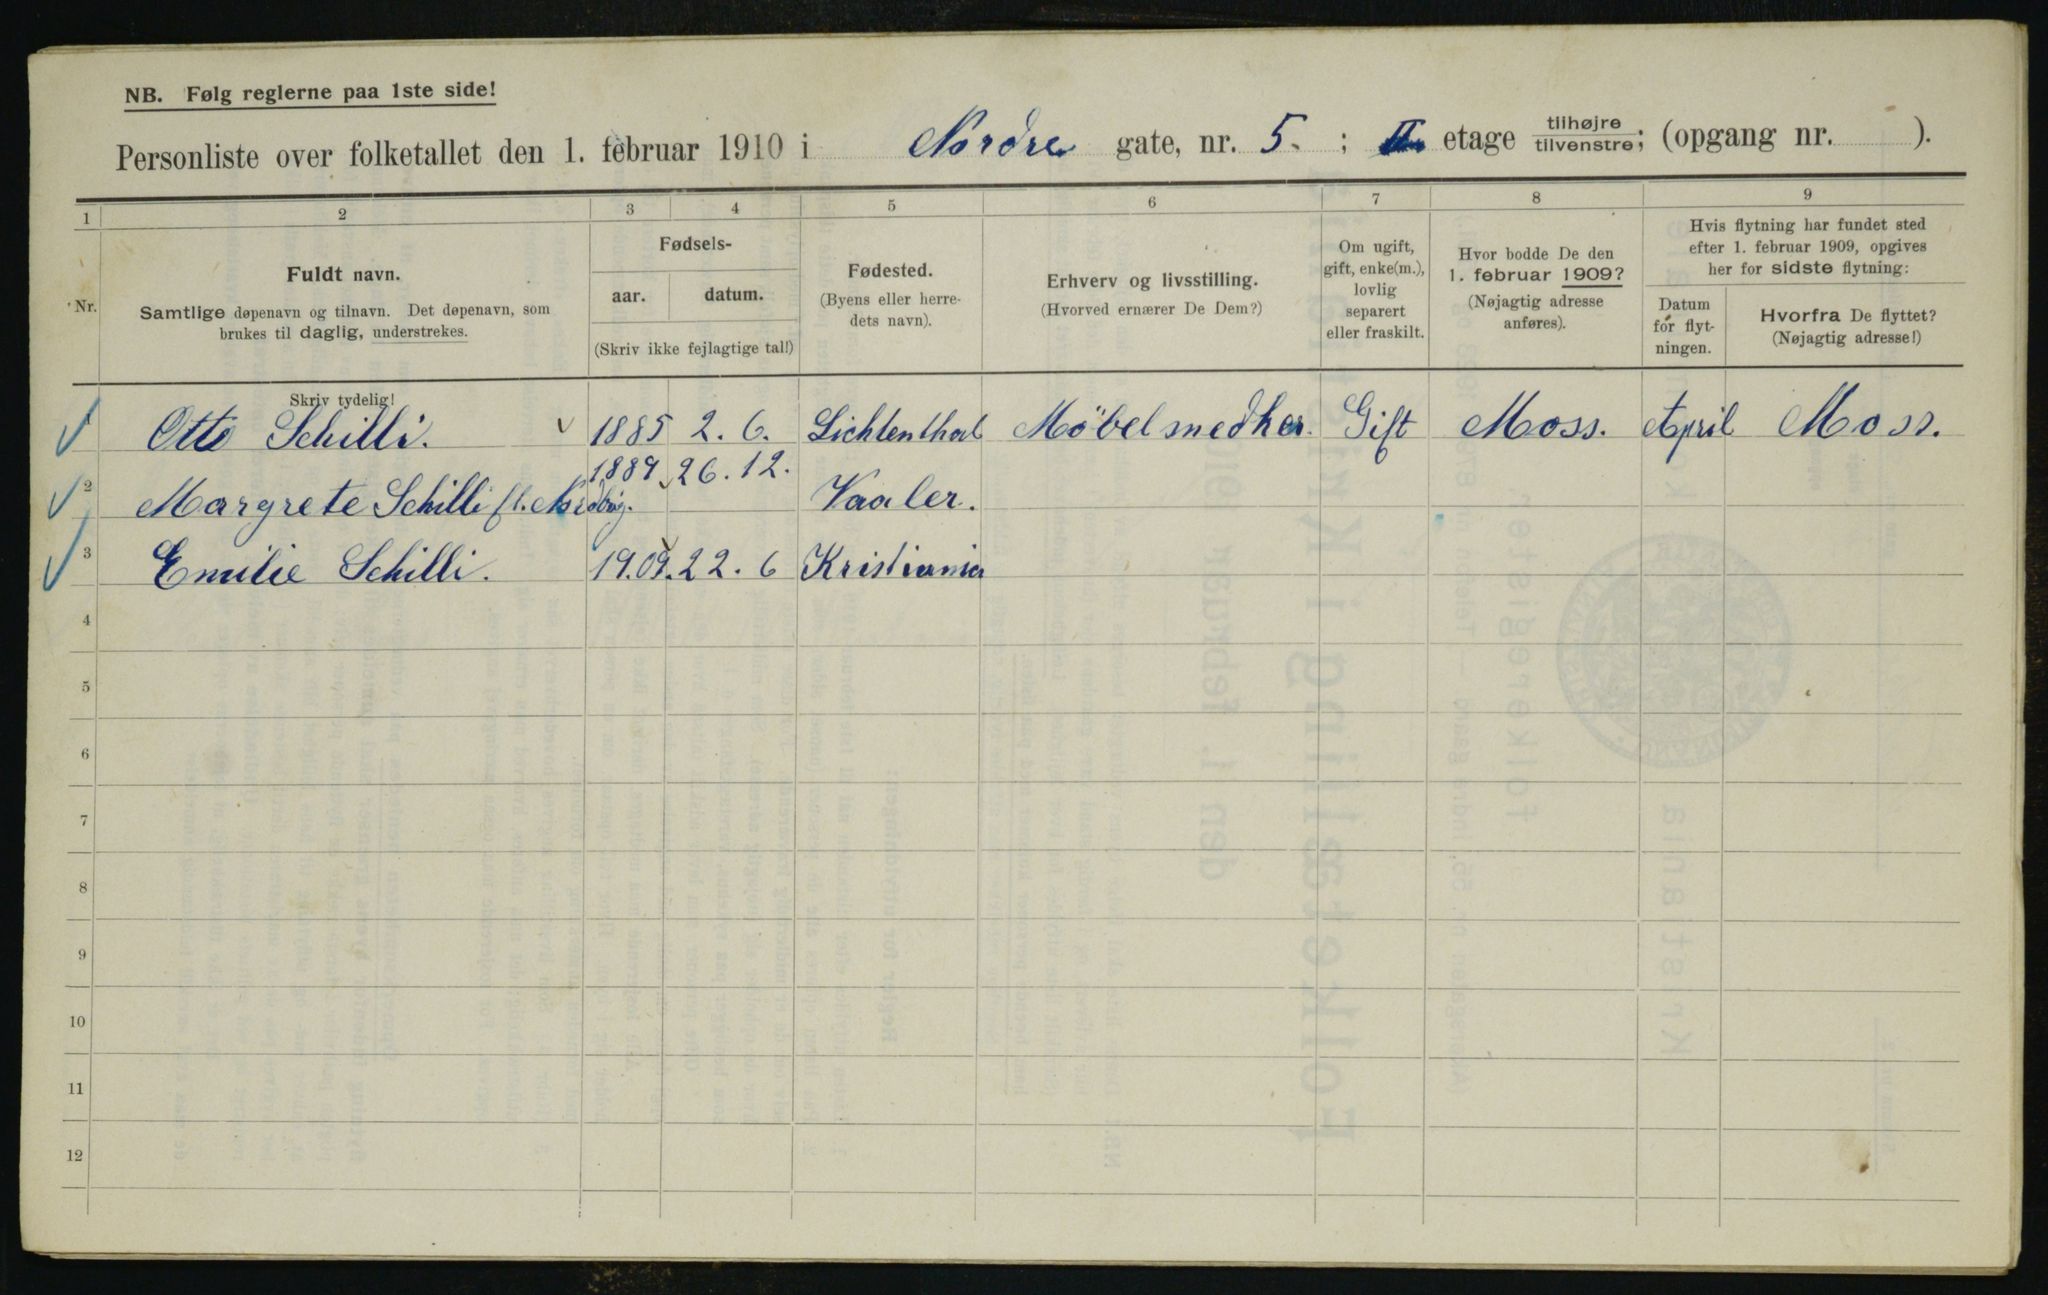 NB. Følg reglerne paa 1ste side!
Personliste over folketallet den 1. februar 1910 i Nordre gate, nr. 5. ; II. etage tilhøjre tilvenstre; (opgang nr. ).
1 2 3 4 5 6 7 8 9
Nr.
Fuldt navn.
Samtlige døpenavn og tilnavn. Det døpenavn, som
brukes til daglig, understrekes.
Fødsels-
aar. datum.
(Skriv ikke fejlagtige tal!)
Fødested.
(Byens eller herre-
dets navn).
Erhverv og livsstilling.
(Hvorved ernærer De Dem?)
Om ugift,
gift, enke(m.),
lovlig
separert
eller fraskilt.
Hvor bodde De den
1. februar 1909?
(Nøjagtig adresse
anføres).
Hvis flytning har fundet sted
efter 1. februar 1909, opgives
her for sidste flytning:
Datum
for flyt-
ningen.
Hvorfra De flyttet?
(Nøjagtig adresse!)
Skriv tydelig!
1 Otto Schilli. 1885 2. 6. Lichtenthal Möbelsnedker. Gift Moss. April Moss.
2 Margrete Schilli f. 1889 26.12. Vaaler.
3 Emilie Schilli. 19.09. 22. 6 Kristiania
4
5
6
7
8
9
10
11
12